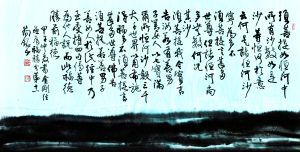 須菩提如恒河中
所有沙數如是
沙等恒河於意
云何是諸恒河沙
寧為多不
須菩提言甚多
世尊但諸恒河尚
多無數何況其沙
須菩提我今實言
七寶滿
爾所恒河沙數三千
大千世界以用布施
得福多不須菩提言
甚多世尊佛告
須菩提若善男子
善女人於此經中乃
至受持四句偈等
為他人說而此福德
勝前福德